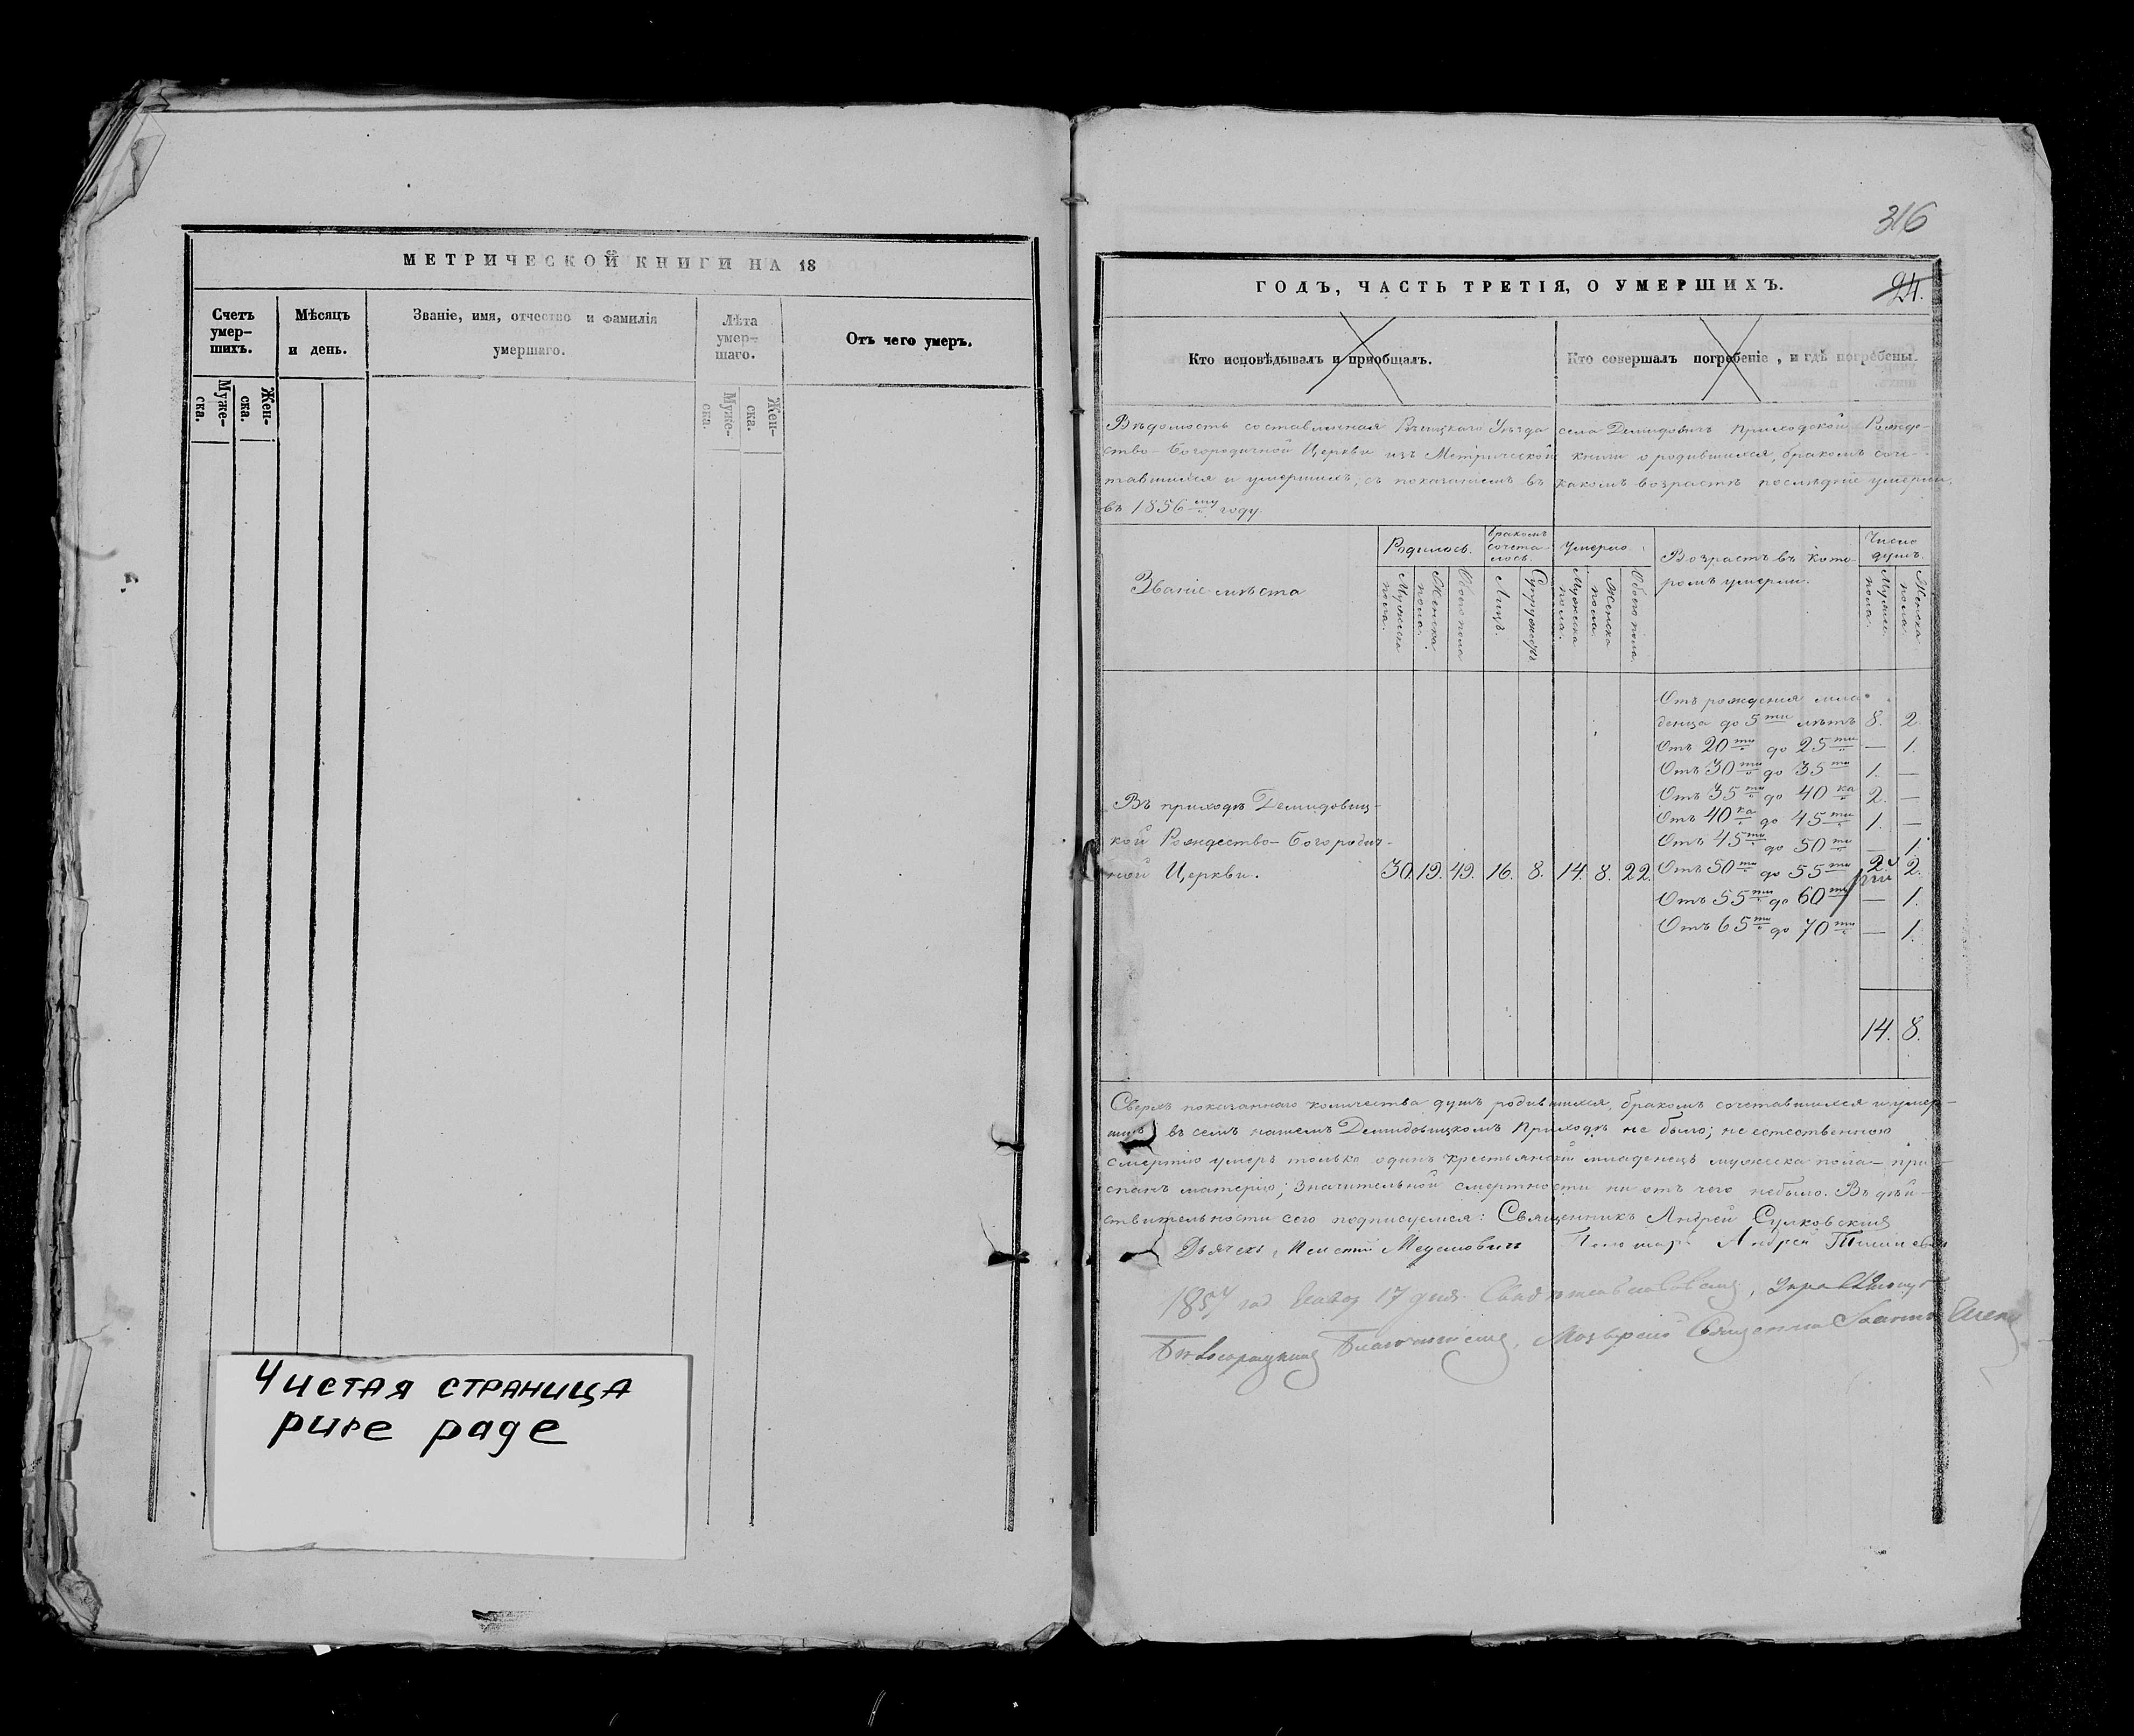 МЕТРИЧЕСКОЙ КНИГИ НА 18
Счетъ умер-шихъ.
Мѣсяцъ и день.
Званіе, имя, отчество и фамилія умершаго.
Лѣта умер-шаго.
Отъ чего умеръ.
Муже-ска.
Жен-ска.
Муже-ска.
Жен-ска.
Чистая страница
pure page
316
24.
ГОДЪ, ЧАСТЬ ТРЕТІЯ, О УМЕРШИХЪ.
Кто исповѣдывалъ и пріобщалъ.
Кто совершалъ погребеніе, и гдѣ погребены.
Вѣдомость составленная Рѣчицкаго Уѣзда села Демидовичъ приходской Рожде-
ство-Богородичной Церкви изъ Метрической книги о родившихся, бракомъ соче-
тавшихся и умершихъ, съ показаніемъ въ какомъ возрастѣ послѣдніе умерли,
въ 1856му году.
Званіе мѣста
Родилось.
бракомъ сочета-лось.
умерло
Возрастъ въ кото-
ромъ умерли.
Число душъ.
Мужеска пола.
Женска пола.
Обоего пола
Лицъ.
Супружествъ
Мужеска пола.
Женска пола.
Обоего пола.
Мужес. пола.
Женска пола.
Отъ рожденія мла-
денца до 5ти лѣтъ 8. 2.
Отъ 20ти до 25ти — 1.
Отъ 30ти до 35ти 1. —
Отъ 35ти до 40ка 2. —
Отъ 40ка до 45ти 1. —
Отъ 45ти до 50ти — 1.
Въ приходѣ Демидовиц-
кой Рождество-Богородич-
ной Церкви. 30. 19. 49. 16. 8. 14. 8. 22. Отъ 50ти до 55ти 2. 2.
Отъ 55ти до 60ти — 1.
Отъ 65ти до 70ти — 1.
14. 8.
Сверхъ показаннаго количества душъ родившихся, бракомъ сочетавшихся и умер-
шихъ въ семъ нашемъ Демидовицкомъ Приходѣ не было; не естественною
смертію умеръ только одинъ крестьянскій младенецъ мужеска пола — при-
спанъ матерію; значительной смертности ни отъ чего небыло. Въ дѣй-
ствительности сего подписуемся: Священникъ Андрей Сулковскій
Дьячекъ Пономарь Андрей
1857 год 17 дня
Благочинный Священникъ Іоаннъ